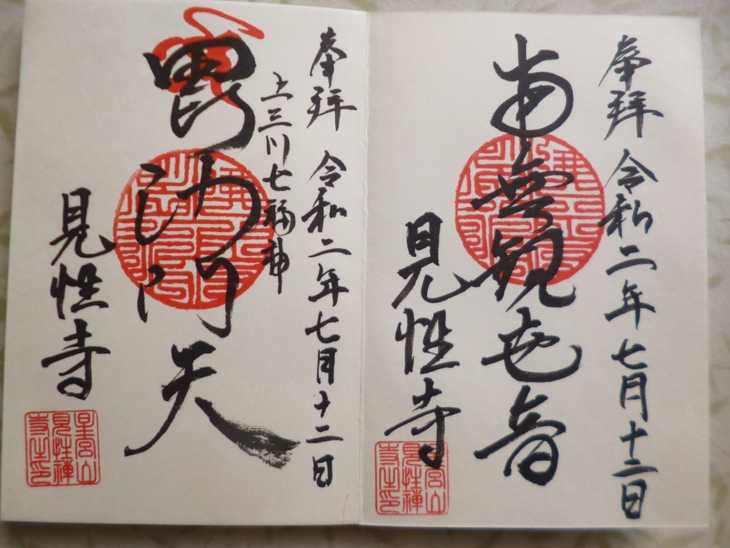 奉拜 令和二年七月十二日
南無観世音
見性寺
奉拜 令和二年七月十二日
上三川七福神
毘沙門天
見性寺
星宮山
見性禅
寺之印